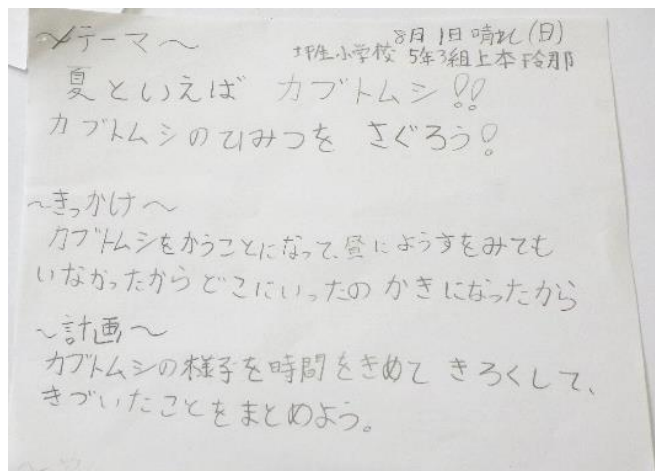 〜テーマ〜
8月1日晴れ(日)
坪生小学校 5年3組上本玲那
夏といえば カブトムシ!!
カブトムシのひみつを さぐろう!
〜きっかけ〜
カブトムシをかうことになって、昼にようすをみても
いなかったからどこにいったの かきになったから
〜計画〜
カブトムシの様子を時間をきめて きろくして、
きづいたことをまとめよう。